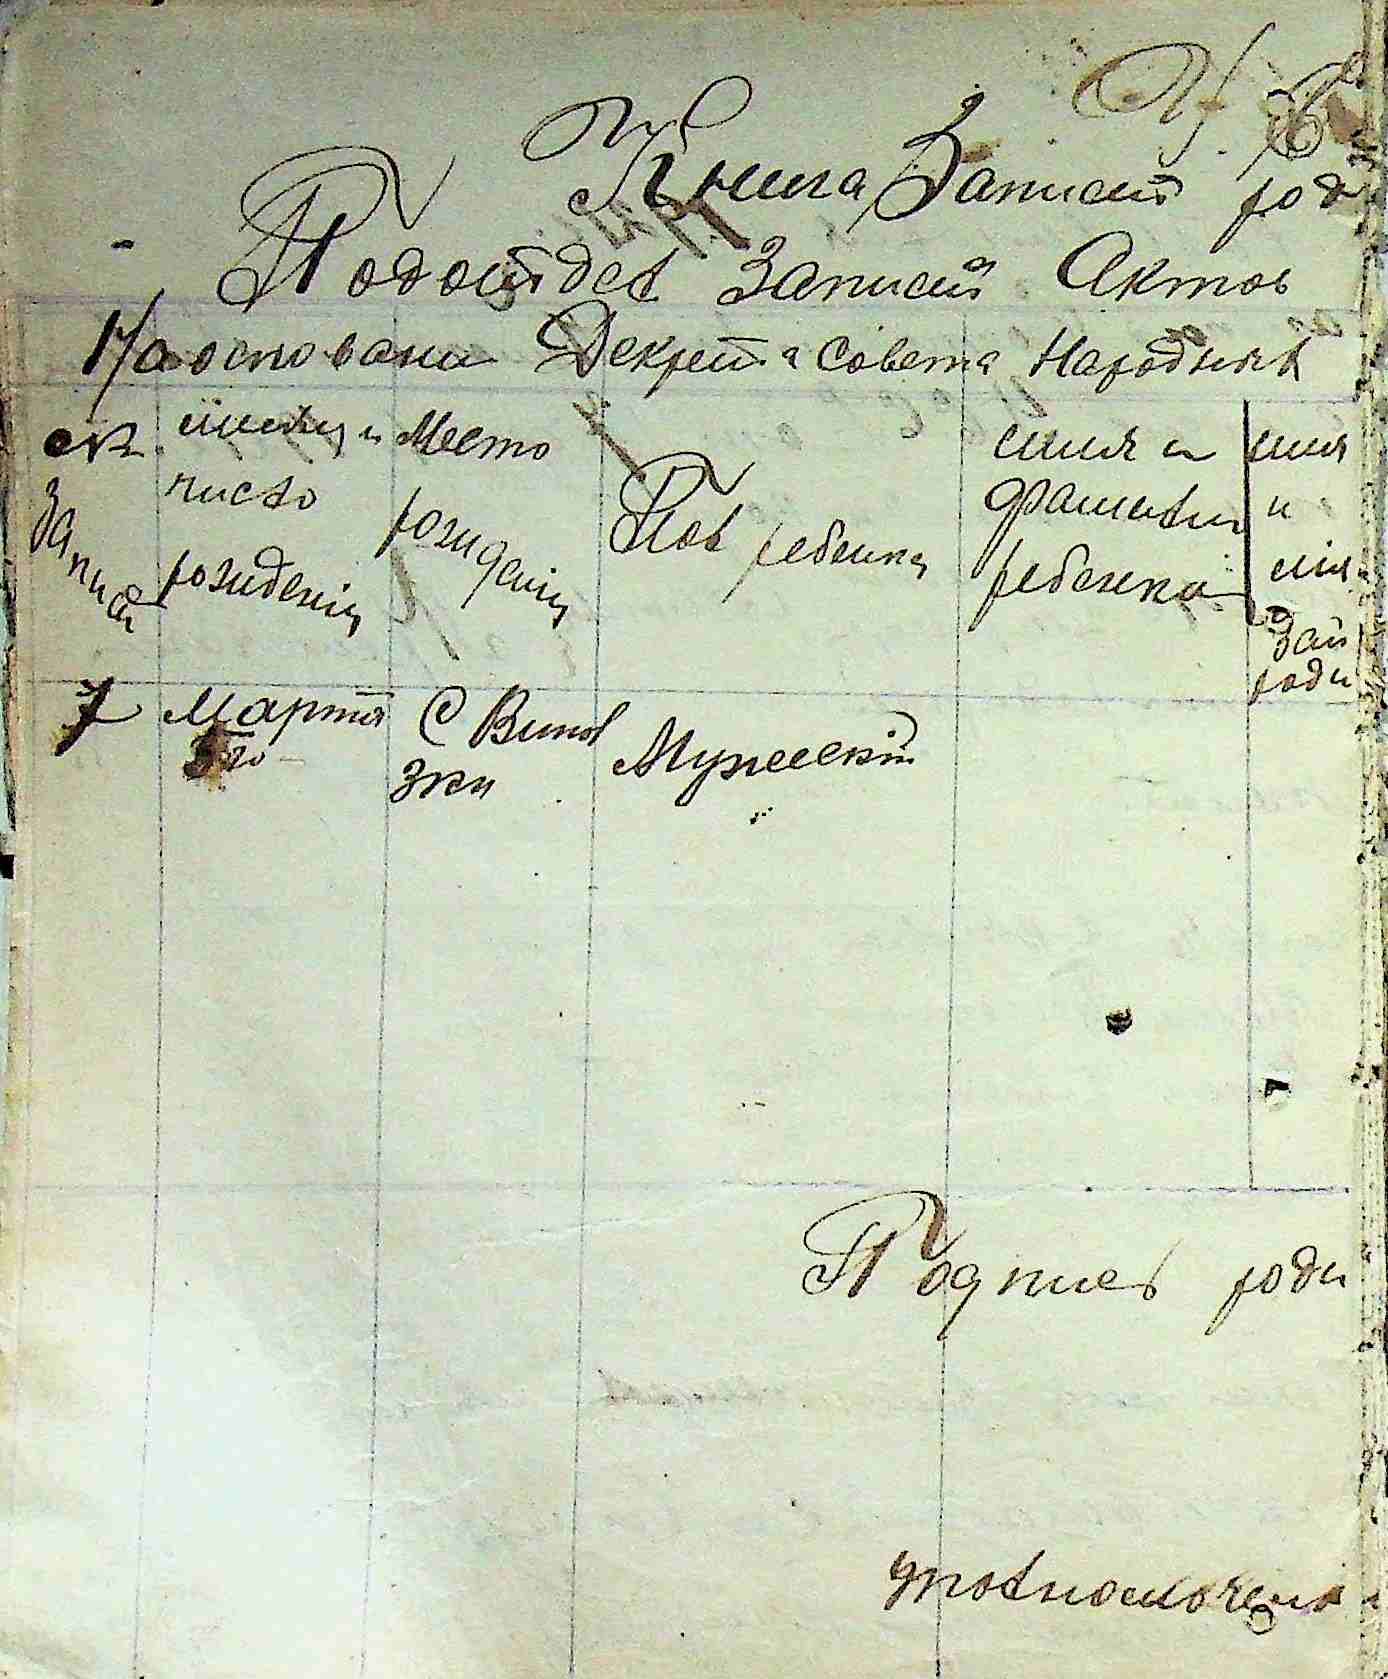 Книга Записей род
Подотдел Записей Актов
На основани Декрета Совета Народных
№ Записей
числο рождения
Место рождения
Пол ребенка
имя и фамилия ребенка
имя и
роди
7 Марта 5го С Вино зки Мужеский
Подпись роди
уполномочены